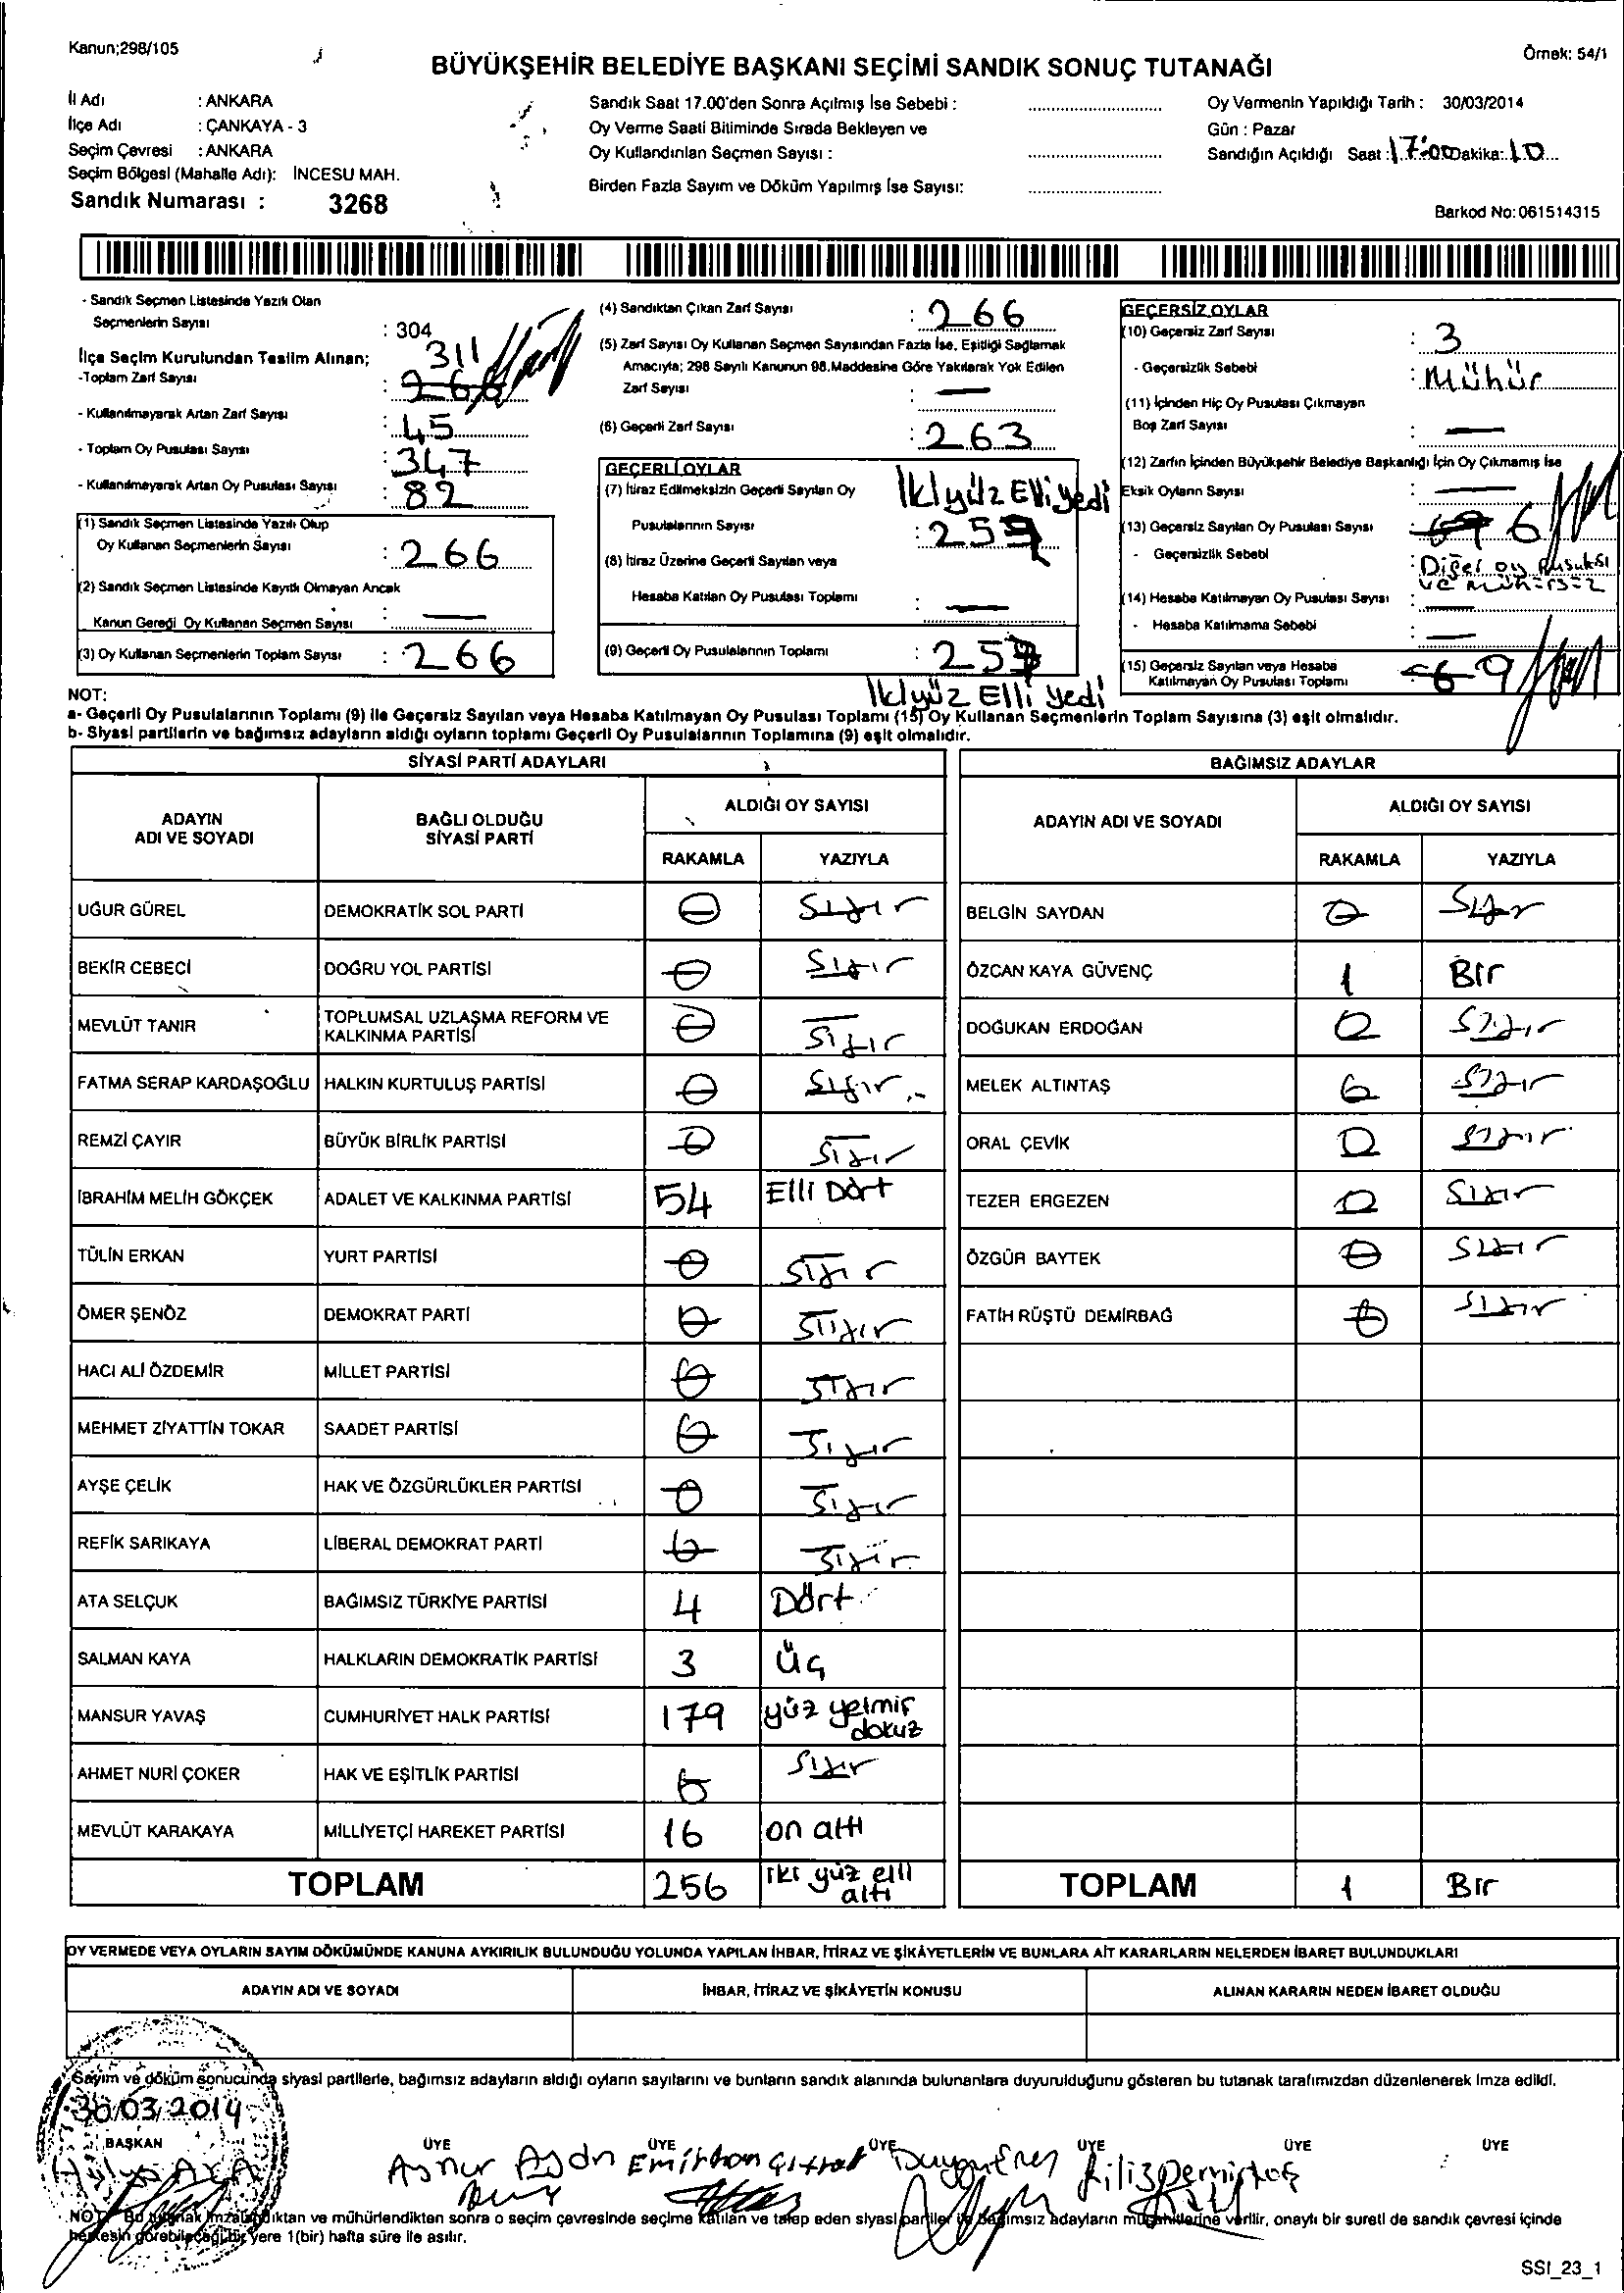 Kanun;298/105
Örnek: 54/1
BÜYÜKŞEHİR BELEDİYE BAŞKANI SEÇİMİ SANDIK SONUÇ TUTANAĞI
İl Adı : ANKARA
İlçe Adı : ÇANKAYA - 3
Seçim Çevresi : ANKARA
Seçim Bölgesi (Mahalle Adı): İNCESU MAH.
Sandık Numarası : 3268
Sandık Saat 17.00'den Sonra Açılmış İse Sebebi :
Oy Verme Saati Bitiminde Sırada Bekleyen ve
Oy Kullandırılan Seçmen Sayısı :
Birden Fazla Sayım ve Döküm Yapılmış İse Sayısı:
Oy Vermenin Yapıldığı Tarih : 30/03/2014
Gün : Pazar
Sandığın Açıldığı Saat : 17:00 Dakika: 10
Barkod No: 061514315
- Sandık Seçmen Listesinde Yazılı Olan
Seçmenlerin Sayısı : 304
İlçe Seçim Kurulundan Teslim Alınan;
311
-Toplam Zarf Sayısı :
- Kullanılmayarak Artan Zarf Sayısı : 45
- Toplam Oy Pusulası Sayısı : 347
- Kullanılmayarak Artan Oy Pusulası Sayısı : 82
(1) Sandık Seçmen Listesinde Yazılı Olup
Oy Kullanan Seçmenlerin Sayısı : 266
(2) Sandık Seçmen Listesinde Kayıtlı Olmayan Ancak
Kanun Gereği Oy Kullanan Seçmen Sayısı : —
(3) Oy Kullanan Seçmenlerin Toplam Sayısı : 266
(4) Sandıktan Çıkan Zarf Sayısı : 266
(5) Zarf Sayısı Oy Kullanan Seçmen Sayısından Fazla İse, Eşitliği Sağlamak
Amacıyla; 298 Sayılı Kanunun 98.Maddesine Göre Yakılarak Yok Edilen
Zarf Sayısı : —
(6) Geçerli Zarf Sayısı : 263
GEÇERLİ OYLAR
(7) İtiraz Edilmeksizin Geçerli Sayılan Oy İkiyüz Elli yedi
Pusulalarının Sayısı : 257
(8) İtiraz Üzerine Geçerli Sayılan veya
Hesaba Katılan Oy Pusulası Toplamı : —
(9) Geçerli Oy Pusulalarının Toplamı : 257
İkiyüz Elli yedi
GEÇERSİZ OYLAR
(10) Geçersiz Zarf Sayısı : 3
- Geçersizlik Sebebi : Mühür
(11) İçinden Hiç Oy Pusulası Çıkmayan
Boş Zarf Sayısı : —
(12) Zarfın İçinden Büyükşehir Belediye Başkanlığı İçin Oy Çıkmamış İse
Eksik Oyların Sayısı : —
(13) Geçersiz Sayılan Oy Pusulası Sayısı : 6
- Geçersizlik Sebebi : Diğer oy Pusulası
ve mühürsüz
(14) Hesaba Katılmayan Oy Pusulası Sayısı : —
- Hesaba Katılmama Sebebi : —
(15) Geçersiz Sayılan veya Hesaba
Katılmayan Oy Pusulası Toplamı : 9
NOT:
a- Geçerli Oy Pusulalarının Toplamı (9) ile Geçersiz Sayılan veya Hesaba Katılmayan Oy Pusulası Toplamı (15) Oy Kullanan Seçmenlerin Toplam Sayısına (3) eşit olmalıdır.
b- Siyasi partilerin ve bağımsız adayların aldığı oyların toplamı Geçerli Oy Pusulalarının Toplamına (9) eşit olmalıdır.
SİYASİ PARTİ ADAYLARI
ADAYIN ADI VE SOYADI BAĞLI OLDUĞU SİYASİ PARTİ ALDIĞI OY SAYISI
RAKAMLA YAZIYLA
UĞUR GÜREL DEMOKRATİK SOL PARTİ 0 Sıfır
BEKİR CEBECİ DOĞRU YOL PARTİSİ 0 Sıfır
MEVLÜT TANIR TOPLUMSAL UZLAŞMA REFORM VE KALKINMA PARTİSİ 0 Sıfır
FATMA SERAP KARDAŞOĞLU HALKIN KURTULUŞ PARTİSİ 0 Sıfır
REMZİ ÇAYIR BÜYÜK BİRLİK PARTİSİ 0 Sıfır
İBRAHİM MELİH GÖKÇEK ADALET VE KALKINMA PARTİSİ 54 Elli Dört
TÜLİN ERKAN YURT PARTİSİ 0 Sıfır
ÖMER ŞENÖZ DEMOKRAT PARTİ 0 Sıfır
HACI ALİ ÖZDEMİR MİLLET PARTİSİ 0 Sıfır
MEHMET ZİYATTİN TOKAR SAADET PARTİSİ 0 Sıfır
AYŞE ÇELİK HAK VE ÖZGÜRLÜKLER PARTİSİ 0 Sıfır
REFİK SARIKAYA LİBERAL DEMOKRAT PARTİ 0 Sıfır
ATA SELÇUK BAĞIMSIZ TÜRKİYE PARTİSİ 4 Dört
SALMAN KAYA HALKLARIN DEMOKRATİK PARTİSİ 3 Üç
MANSUR YAVAŞ CUMHURİYET HALK PARTİSİ 179 yüz yetmiş dokuz
AHMET NURİ ÇOKER HAK VE EŞİTLİK PARTİSİ 0 Sıfır
MEVLÜT KARAKAYA MİLLİYETÇİ HAREKET PARTİSİ 16 on altı
TOPLAM 256 iki yüz elli altı
BAĞIMSIZ ADAYLAR
ADAYIN ADI VE SOYADI ALDIĞI OY SAYISI
RAKAMLA YAZIYLA
BELGİN SAYDAN 0 Sıfır
ÖZCAN KAYA GÜVENÇ 1 Bir
DOĞUKAN ERDOĞAN 0 Sıfır
MELEK ALTINTAŞ 0 Sıfır
ORAL ÇEVİK 0 Sıfır
TEZER ERGEZEN 0 Sıfır
ÖZGÜR BAYTEK 0 Sıfır
FATİH RÜŞTÜ DEMİRBAĞ 0 Sıfır
TOPLAM 1 Bir
OY VERMEDE VEYA OYLARIN SAYIM DÖKÜMÜNDE KANUNA AYKIRILIK BULUNDUĞU YOLUNDA YAPILAN İHBAR, İTİRAZ VE ŞİKÂYETLERİN VE BUNLARA AİT KARARLARIN NELERDEN İBARET BULUNDUKLARI
ADAYIN ADI VE SOYADI İHBAR, İTİRAZ VE ŞİKÂYETİN KONUSU ALINAN KARARIN NEDEN İBARET OLDUĞU
Sayım ve döküm sonucunda siyasi partilerle, bağımsız adayların aldığı oyların sayılarını ve bunların sandık alanında bulunanlara duyurulduğunu gösteren bu tutanak tarafımızdan düzenlenerek imza edildi.
30/03/2014
BAŞKAN ÜYE ÜYE ÜYE ÜYE ÜYE ÜYE
Aynur Aydın Emirhan
NOT: Bu tutanak imzalandıktan ve mühürlendikten sonra o seçim çevresinde seçime katılan ve talep eden siyasi partiler ile bağımsız adayların müşahitlerine verilir, onaylı bir sureti de sandık çevresi içinde
herkesin görebileceği bir yere 1(bir) hafta süre ile asılır.
SSI_23_1